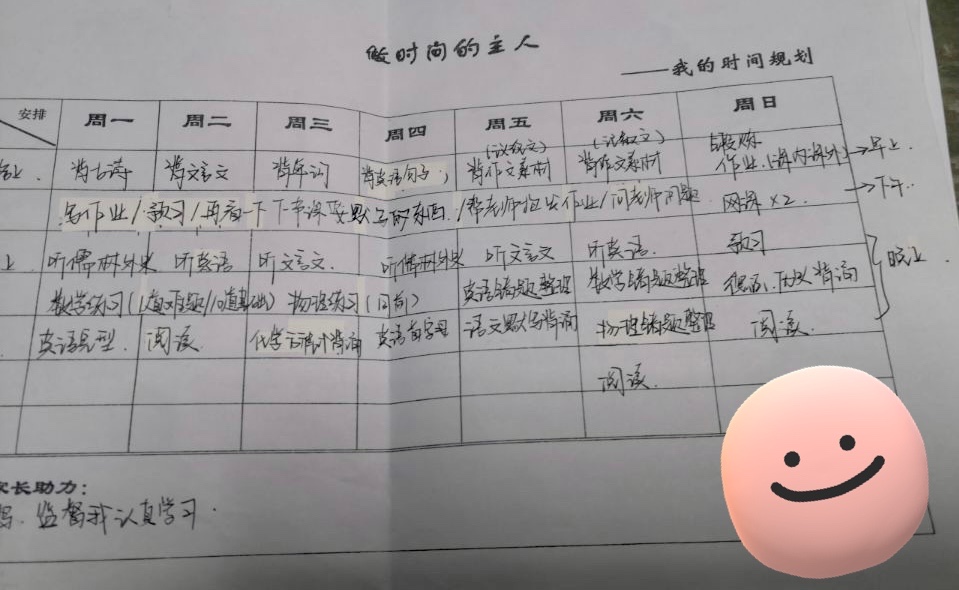 做时间的主人
——我的时间规划
安排 周一 周二 周三 周四 周五 周六 周日
(议叙文) (议叙文) 锻炼
背古诗 背文言文 背单词 背英语句子 背作文素材 背作文素材 作业(课内课外) →早上
写作业/预习/再看一下下节课要默写的东西/帮老师 作业/问老师问题 网课×2 →下午
上 听儒林外史 听英语 听文言文 听儒林外史 听文言文 听英语 预习 晚上
数学练习(1道难题/10道基础) 物理练习(同前) 英语错题整理 数学错题整理 历史背诵
英语 阅读 化学方程式背诵 英语首字母 语文默写背诵 物理错题整理 阅读
阅读
家长助力:
妈 监督我认真学习.